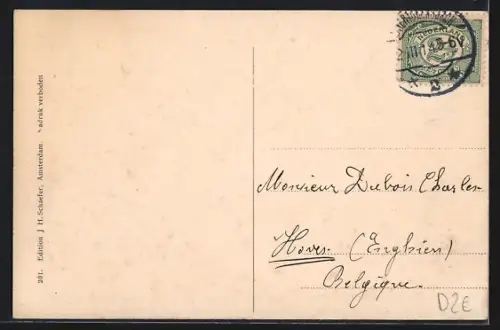 NEDERLAND
2
Monsieur Dubois Charles
Hoves (Enghien)
Belgique
D2E
261. Edition J H. Schaefer, Amsterdam. Nadruk verboden